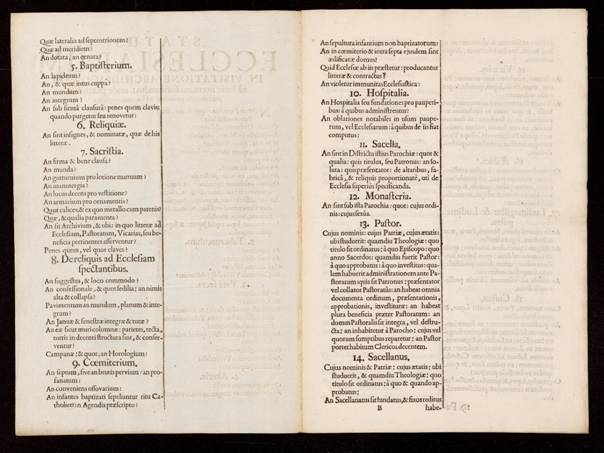 Quæ lateralis ad septentrionem?
Quæ ad meridiem?
An dotata, an ornata?
5. Baptisterium.
An lapideum?
An, & quæ intus cuppa?
An mundum?
An integrum?
An sub firmâ clausurâ: penes quem clavis:
quando purgetur seu renovetur:
6. Reliquiæ.
An sint insignes, & nominatæ, quæ de his
litteræ.
7. Sacristia.
An firma & bene clausa?
An munda?
An gutturnium pro lotione manuum?
An manutergia?
An locus decens pro vestitione?
An armarium pro ornamentis?
Quot calices & ex quo metallo cum patenis?
Quæ, & qualia paramenta?
An sit Archivium, & ubi: in quo literæ ad
Ecclesiam, Pastoratum, Vicarias, seu be-
neficia pertinentes asserventur?
Penes quem, vel quos claves?
8. De reliquis ad Ecclesiam
spectantibus.
An suggestus, & loco commodo?
An confessionale, & quot sedilia: an nimis
alta & collapsa?
Pavimentum an mundum, planum & inte-
grum?
An Januæ & fenestræ integræ & tutæ?
An ex sicut muri columnæ: parietes, tecta,
turris in decenti structura sint, & conser-
ventur?
Campanæ: & quot, an Horologium?
9. Cœmiterium.
An septum, sive an brutis pervium: an pro-
fanatum:
An conveniens ossovarium:
An infantes baptizati sepeliuntur ritu Ca-
tholico: in Agendis præscripto:
An sepultura infantium non baptizatorum:
An in cœmiterio & intra septa ejusdem sint
ædificatæ domus?
Quid Ecclesiæ ab iis præstetur: producantur
literæ & contractus?
An violetur immunitas Ecclesiastica:
10. Hospitalia.
An Hospitalia seu fundationes pro pauperi-
bus: à quibus administrentur?
An oblationes notabiles in usum paupe-
rum, vel Ecclesiarum: à quibus de iis fiat
computus:
11. Sacella,
An sint in Districtu istius Parochiæ: quot &
qualia: quis titulus, seu Patronus: an so-
luta: quis præsentator: de altaribus, fa-
bricâ, & reliquis proportionatè, uti de
Ecclesia superiùs specificanda.
12. Monasteria.
An sint sub ista Parochia: quot: cujus ordi-
nis: cujus sexûs.
13. Pastor.
Cujus nominis: cujus Patriæ, cujus ætatis:
ubi studuerit: quamdiu Theologiæ: quo
titulo sit ordinatus: à quo Episcopo: quo
anno Sacerdos: quamdiu fuerit Pastor:
à quo approbatus: à quo investitus: qua-
lem habuerit administrationem ante Pa-
storatum: quis sit Patronus: præsentator
vel collator Pastoratûs: an habeat omnia
documenta ordinum, præsentationis,
approbationis, investituræ: an habeat
plura beneficia præter Pastoratum: an
domus Pastoralis sit integra, vel destru-
cta: an inhabitetur à Parocho: cujus vel
quorum sumptibus reparetur: an Pastor
portet habitum Clerico decentem.
14. Sacellanus,
Cujus nominis & Patriæ: cujus ætatis: ubi
studuerit, & quamdiu Theologiæ: quo
titulo sit ordinatus: à quo & quando ap-
probatus:
An Sacellanatus sit fundatus, & fixos reditus
B habe-